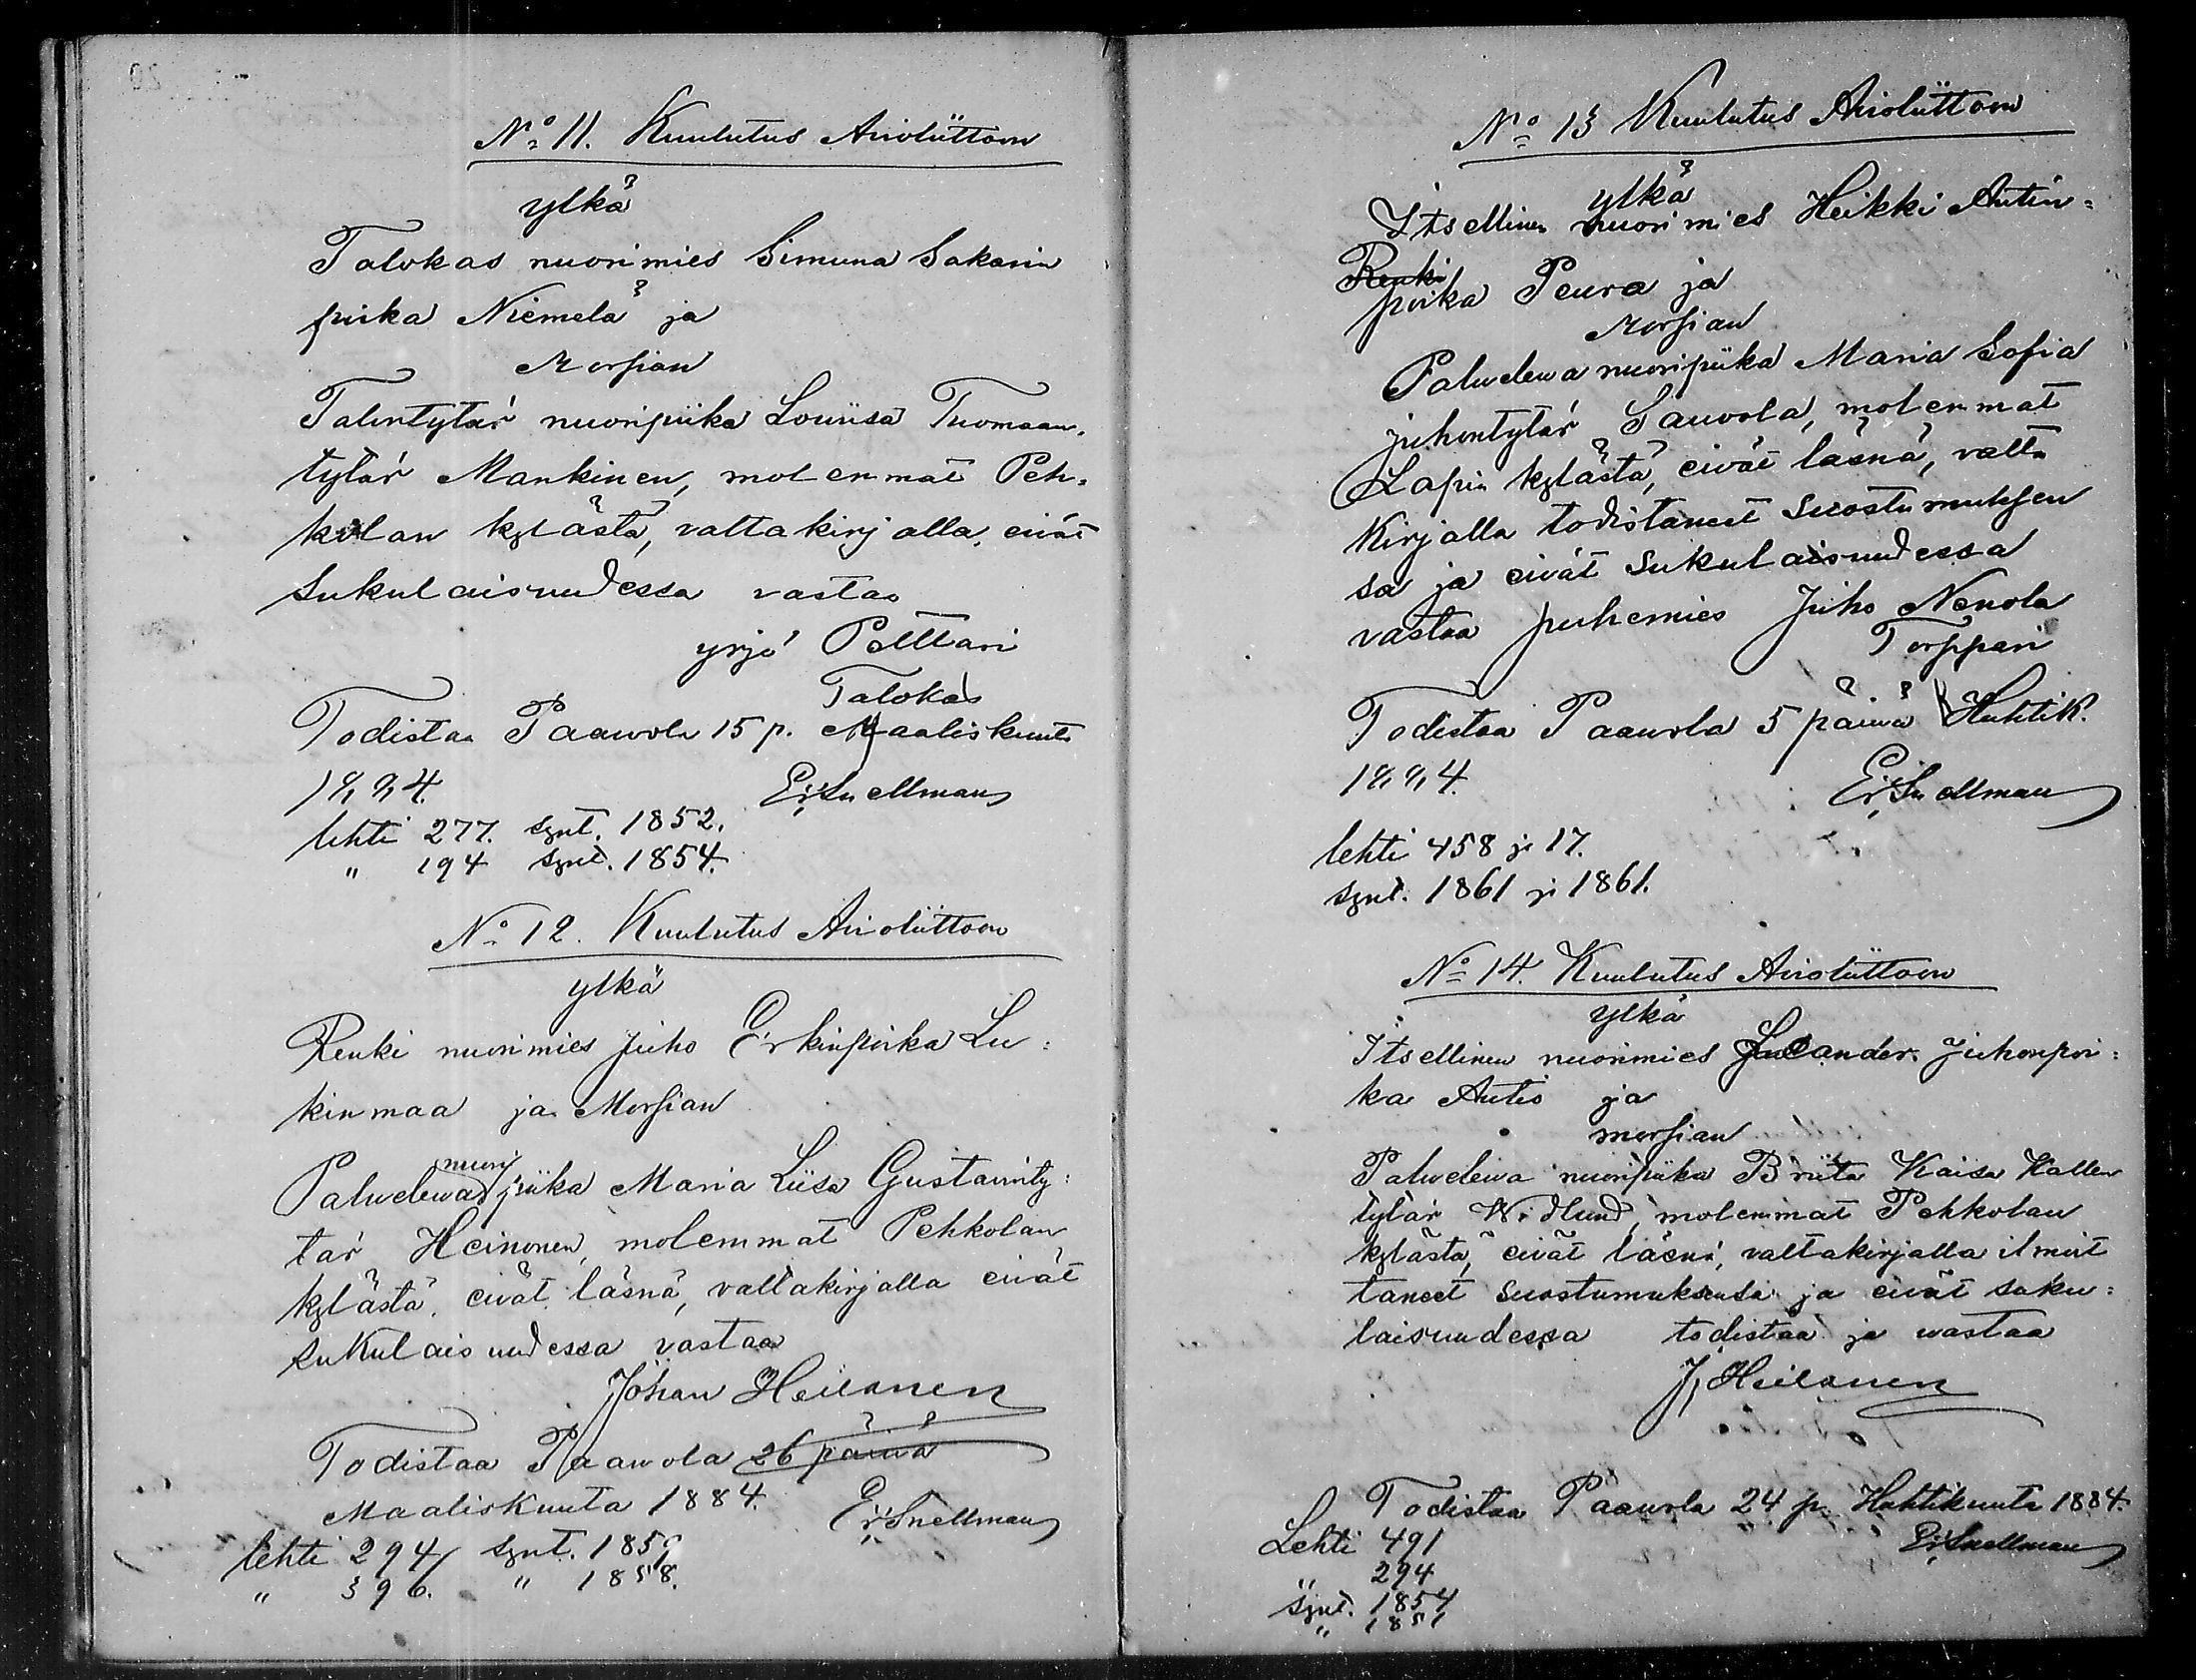 No 11. Kuulutus Avioliittoon
ylkä
Talokas nuorimies Simuna Sakarin
poika Niemelä ja
Morsian
Talontytär nuoripiika Lowiisa Tuomaan-
tytär Mankinen, molemmat Peh-
kolan kylästä, valtakirjalla, eivät
Sukulaisuudessa vastaa
yrjö Polttari
Talokas
Todistaa Paawola 15 p. Maaliskuuta
1884. E. Snellman
lehti 277. synt. 1852.
" 194 synt. 1854.
No 12. Kuulutus Avioliittoon
ylkä
Renki nuorimies Juho Erkinpoika Lu=
kinmaa ja Morsian
Palweleva nuori piika Maria Liisa Gustawinty=
tär Heinonen, molemmat Pehkolan
kylästä, eivät läsnä, valtakirjalla eivät
sukulaisuudessa vastaa
Johan Heilanen
Todistaa Paawola 26 päiwä
Maaliskuuta 1884. E. Snellman
lehti 294 synt. 1859
" 396. " 1858.
No 13 Kuulutus Avioliittoon
ylkä
Itsellinen nuorimies Heikki Antin=
Renki
poika Peura ja
Morsian
Palveleva nuoripiika Maria Sofia
juhontytär Sauvola, molemmat
Lapin kylästä, eivät läsnä, valta
Kirjalla todistaneet Suostumuksen
sa ja eivät Sukulaisuudessa
vastaa puhemies Juho Nenola
Torppari
Todistaa Paawola 5 päiwä Huhtik.
1884. E. Snellman
lehti 458 ja 17.
synt. 1861 ja 1861.
No 14. Kuulutus Avioliittoon
ylkä
Itsellinen nuorimies Leander Juhonpoi=
ka Autio ja
morsian
Palveleva nuoripiika Briita Kaisa Kallen
tytär Widlund, molemmat Pehkolan
kylästä, eivät läsnä, valtakirjalla ilmoit
taneet Suostumuksensa ja eivät suku=
laisuudessa todistaa ja wastaa
J. Heilanen
Todistaa Paawola 24 p. Huhtikuuta 1884.
Lehti 491 E. Snellman
" 294
synt. 1854
" 1851